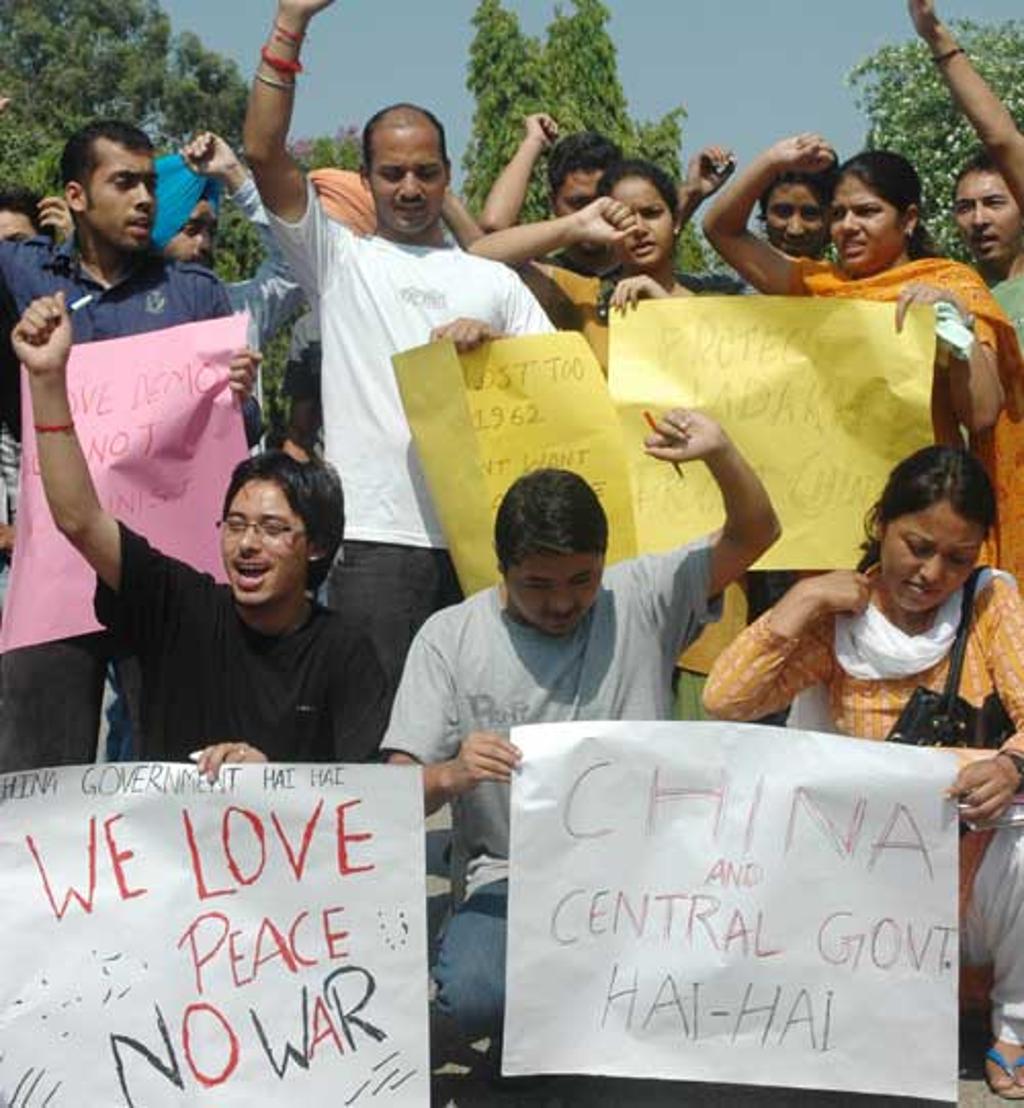 OVE DEMO
NOT
NIST
OST TOO
1962
NT WANT
PROTECT
LADAKH
FROM CHINA
HINA GOVERNMENT HAI HAI
WE LOVE
PEACE
NO WAR
CHINA
AND
CENTRAL GOVT.
HAI-HAI